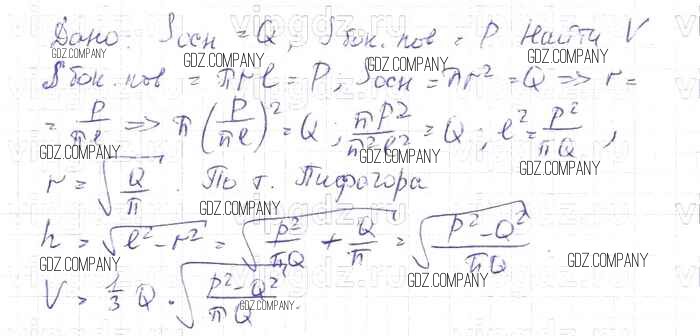 Дано: Sосн = Q, Sбок. пов = P Найти V
GDZ.COMPANY GDZ.COMPANY GDZ.COMPANY
Sбок. пов = πrl = P, Sосн = πr² = Q => r =
GDZ.COMPANY GDZ.COMPANY
= P/πl => π(P/πl)² = Q ; πP²/π²l² = Q ; l² = P²/πQ ,
GDZ.COMPANY GDZ.COMPANY GDZ.COMPANY
r = √(Q/π) . По т. Пифагора
GDZ.COMPANY
h = √(l² - r²) = √(P²/πQ + Q/π) = √((P² - Q²)/πQ)
GDZ.COMPANY GDZ.COMPANY GDZ.COMPANY
V = 1/3 Q · √((P² - Q²)/πQ)
GDZ.COMPANY